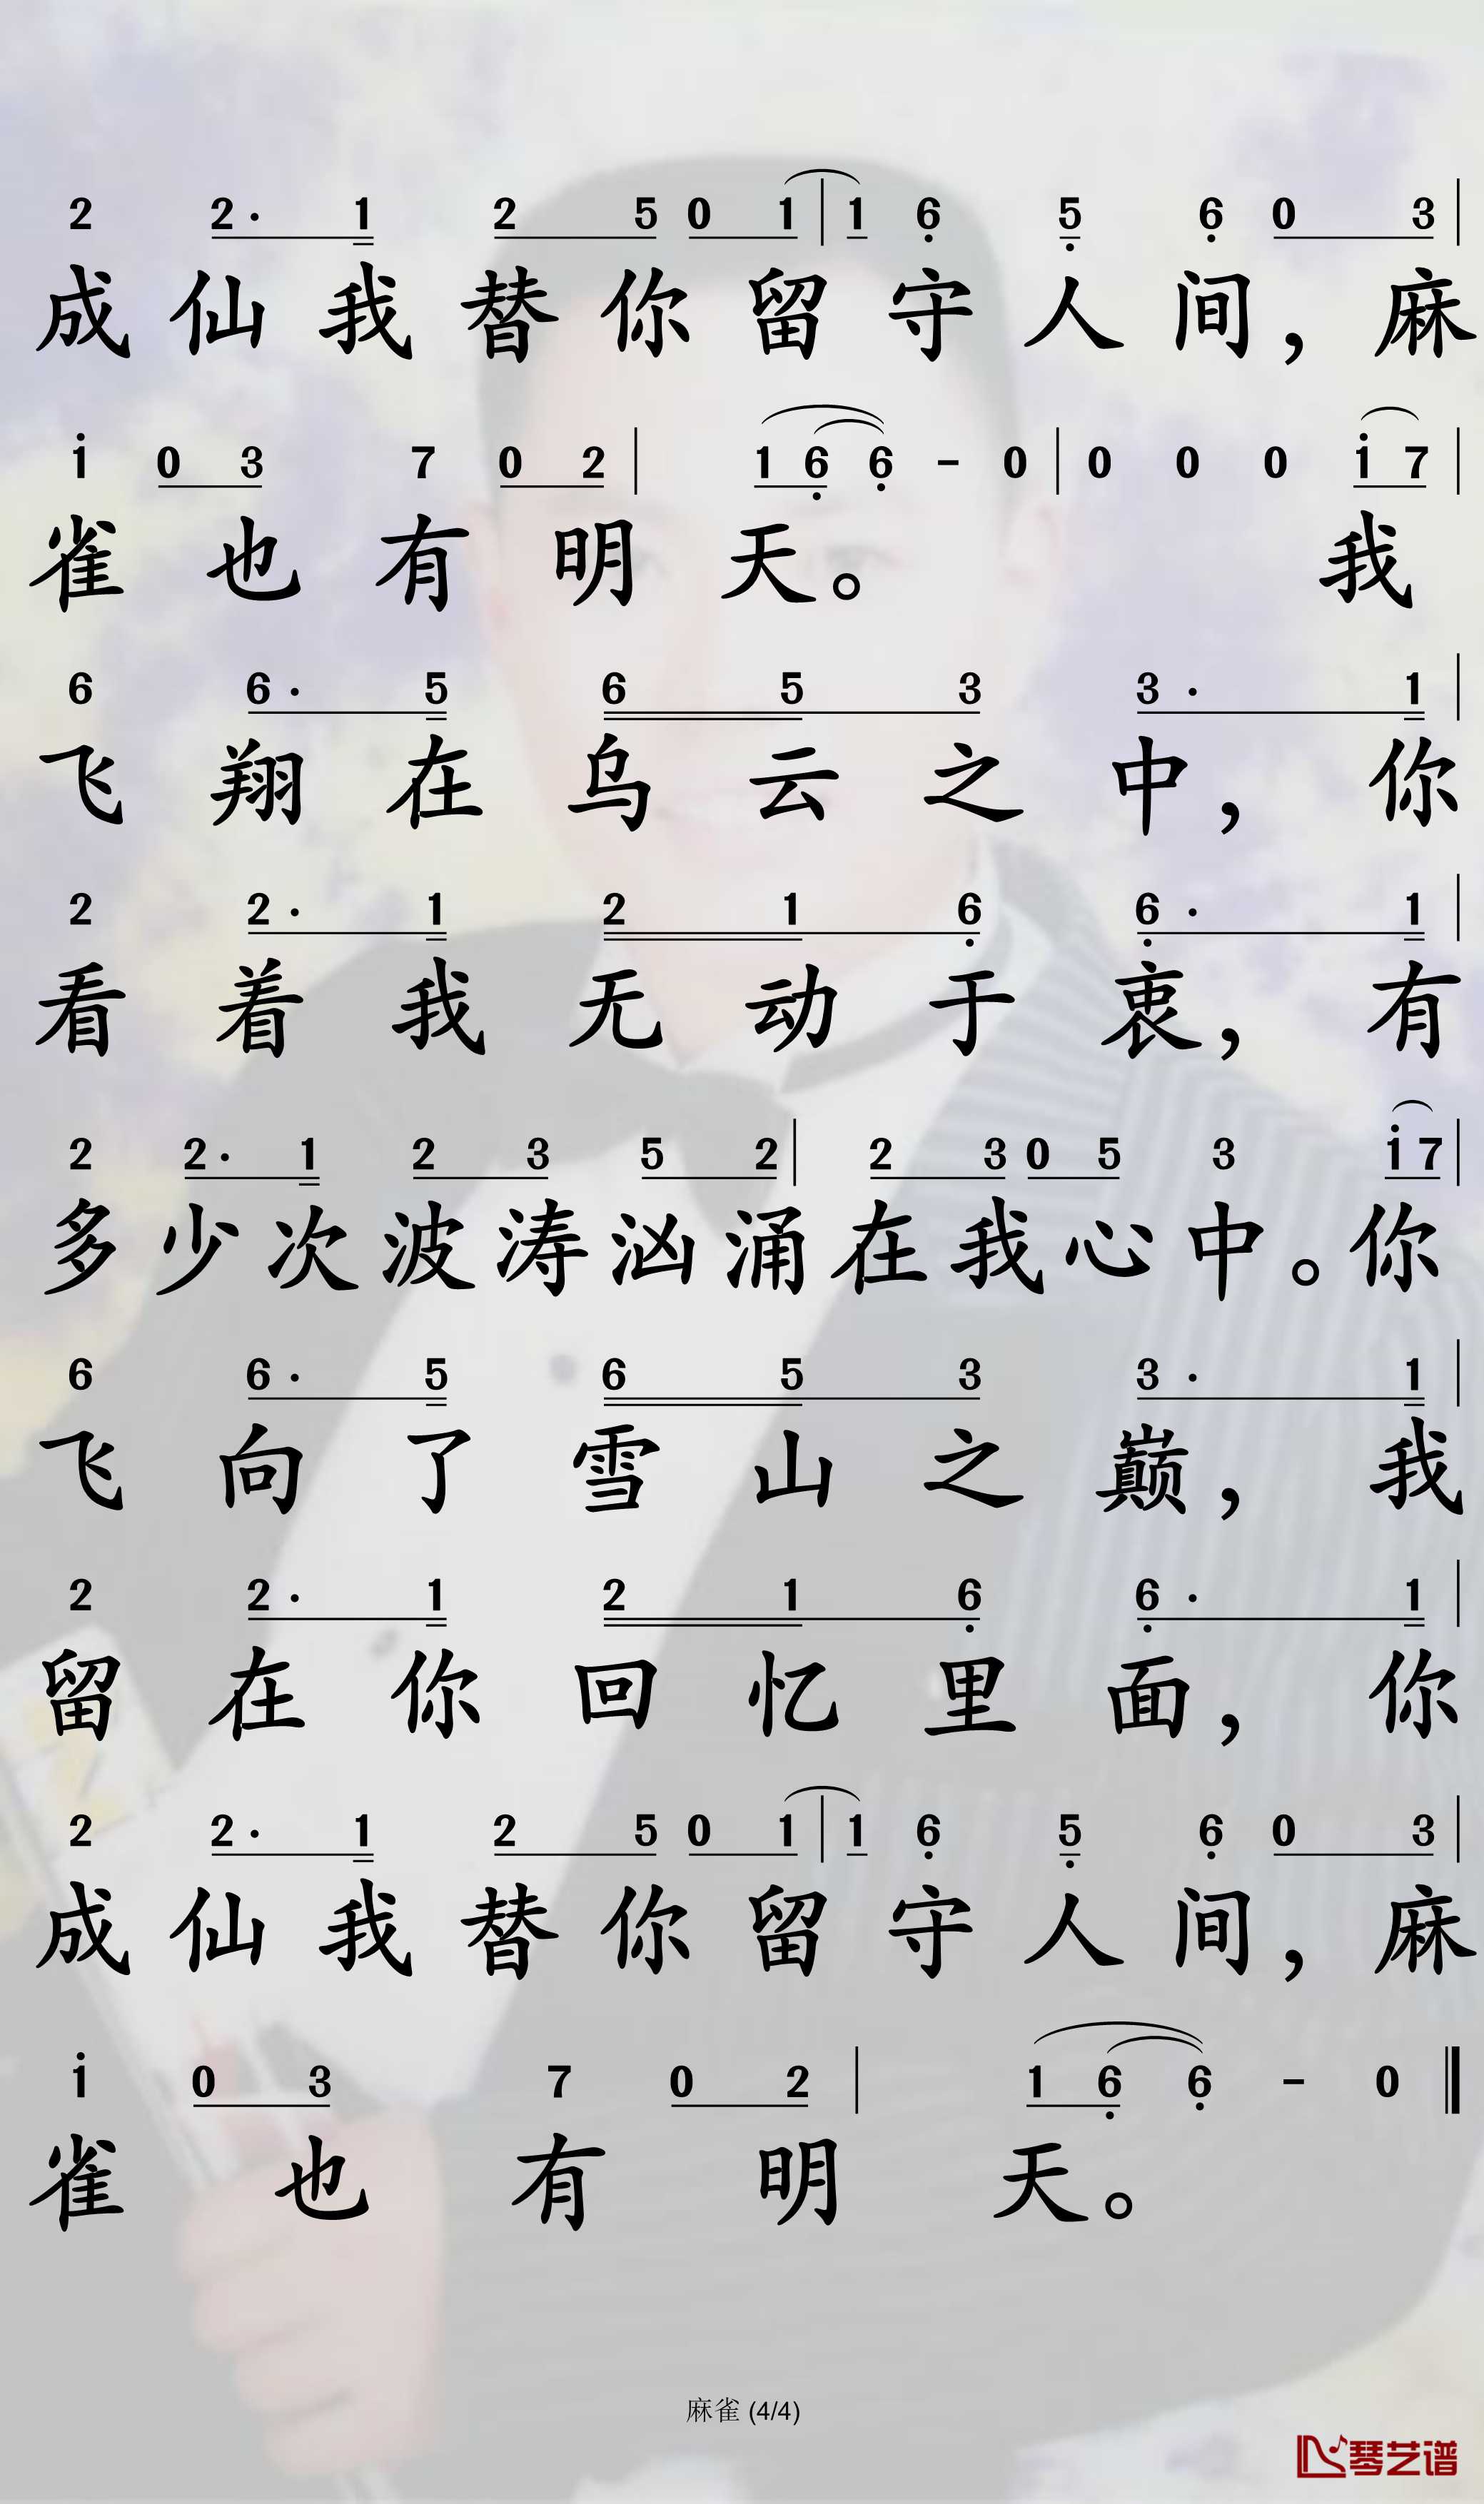 2 2· 1 2 5 0 1 | 1 6 5 6 0 3 |
成仙我替你留守人间，麻
i 0 3 7 0 2 | 1 6 6 - 0 | 0 0 0 i 7 |
雀也有明天。 我
6 6· 5 6 5 3 3· 1 |
飞翔在乌云之中，你
2 2· 1 2 1 6 6· 1 |
看着我无动于衷，有
2 2· 1 2 3 5 2 | 2 3 0 5 3 i 7 |
多少次波涛汹涌在我心中。你
6 6· 5 6 5 3 3· 1 |
飞向了雪山之巅，我
2 2· 1 2 1 6 6· 1 |
留在你回忆里面，你
2 2· 1 2 5 0 1 | 1 6 5 6 0 3 |
成仙我替你留守人间，麻
i 0 3 7 0 2 | 1 6 6 - 0
雀也有明天。
麻雀 (4/4)
琴艺谱